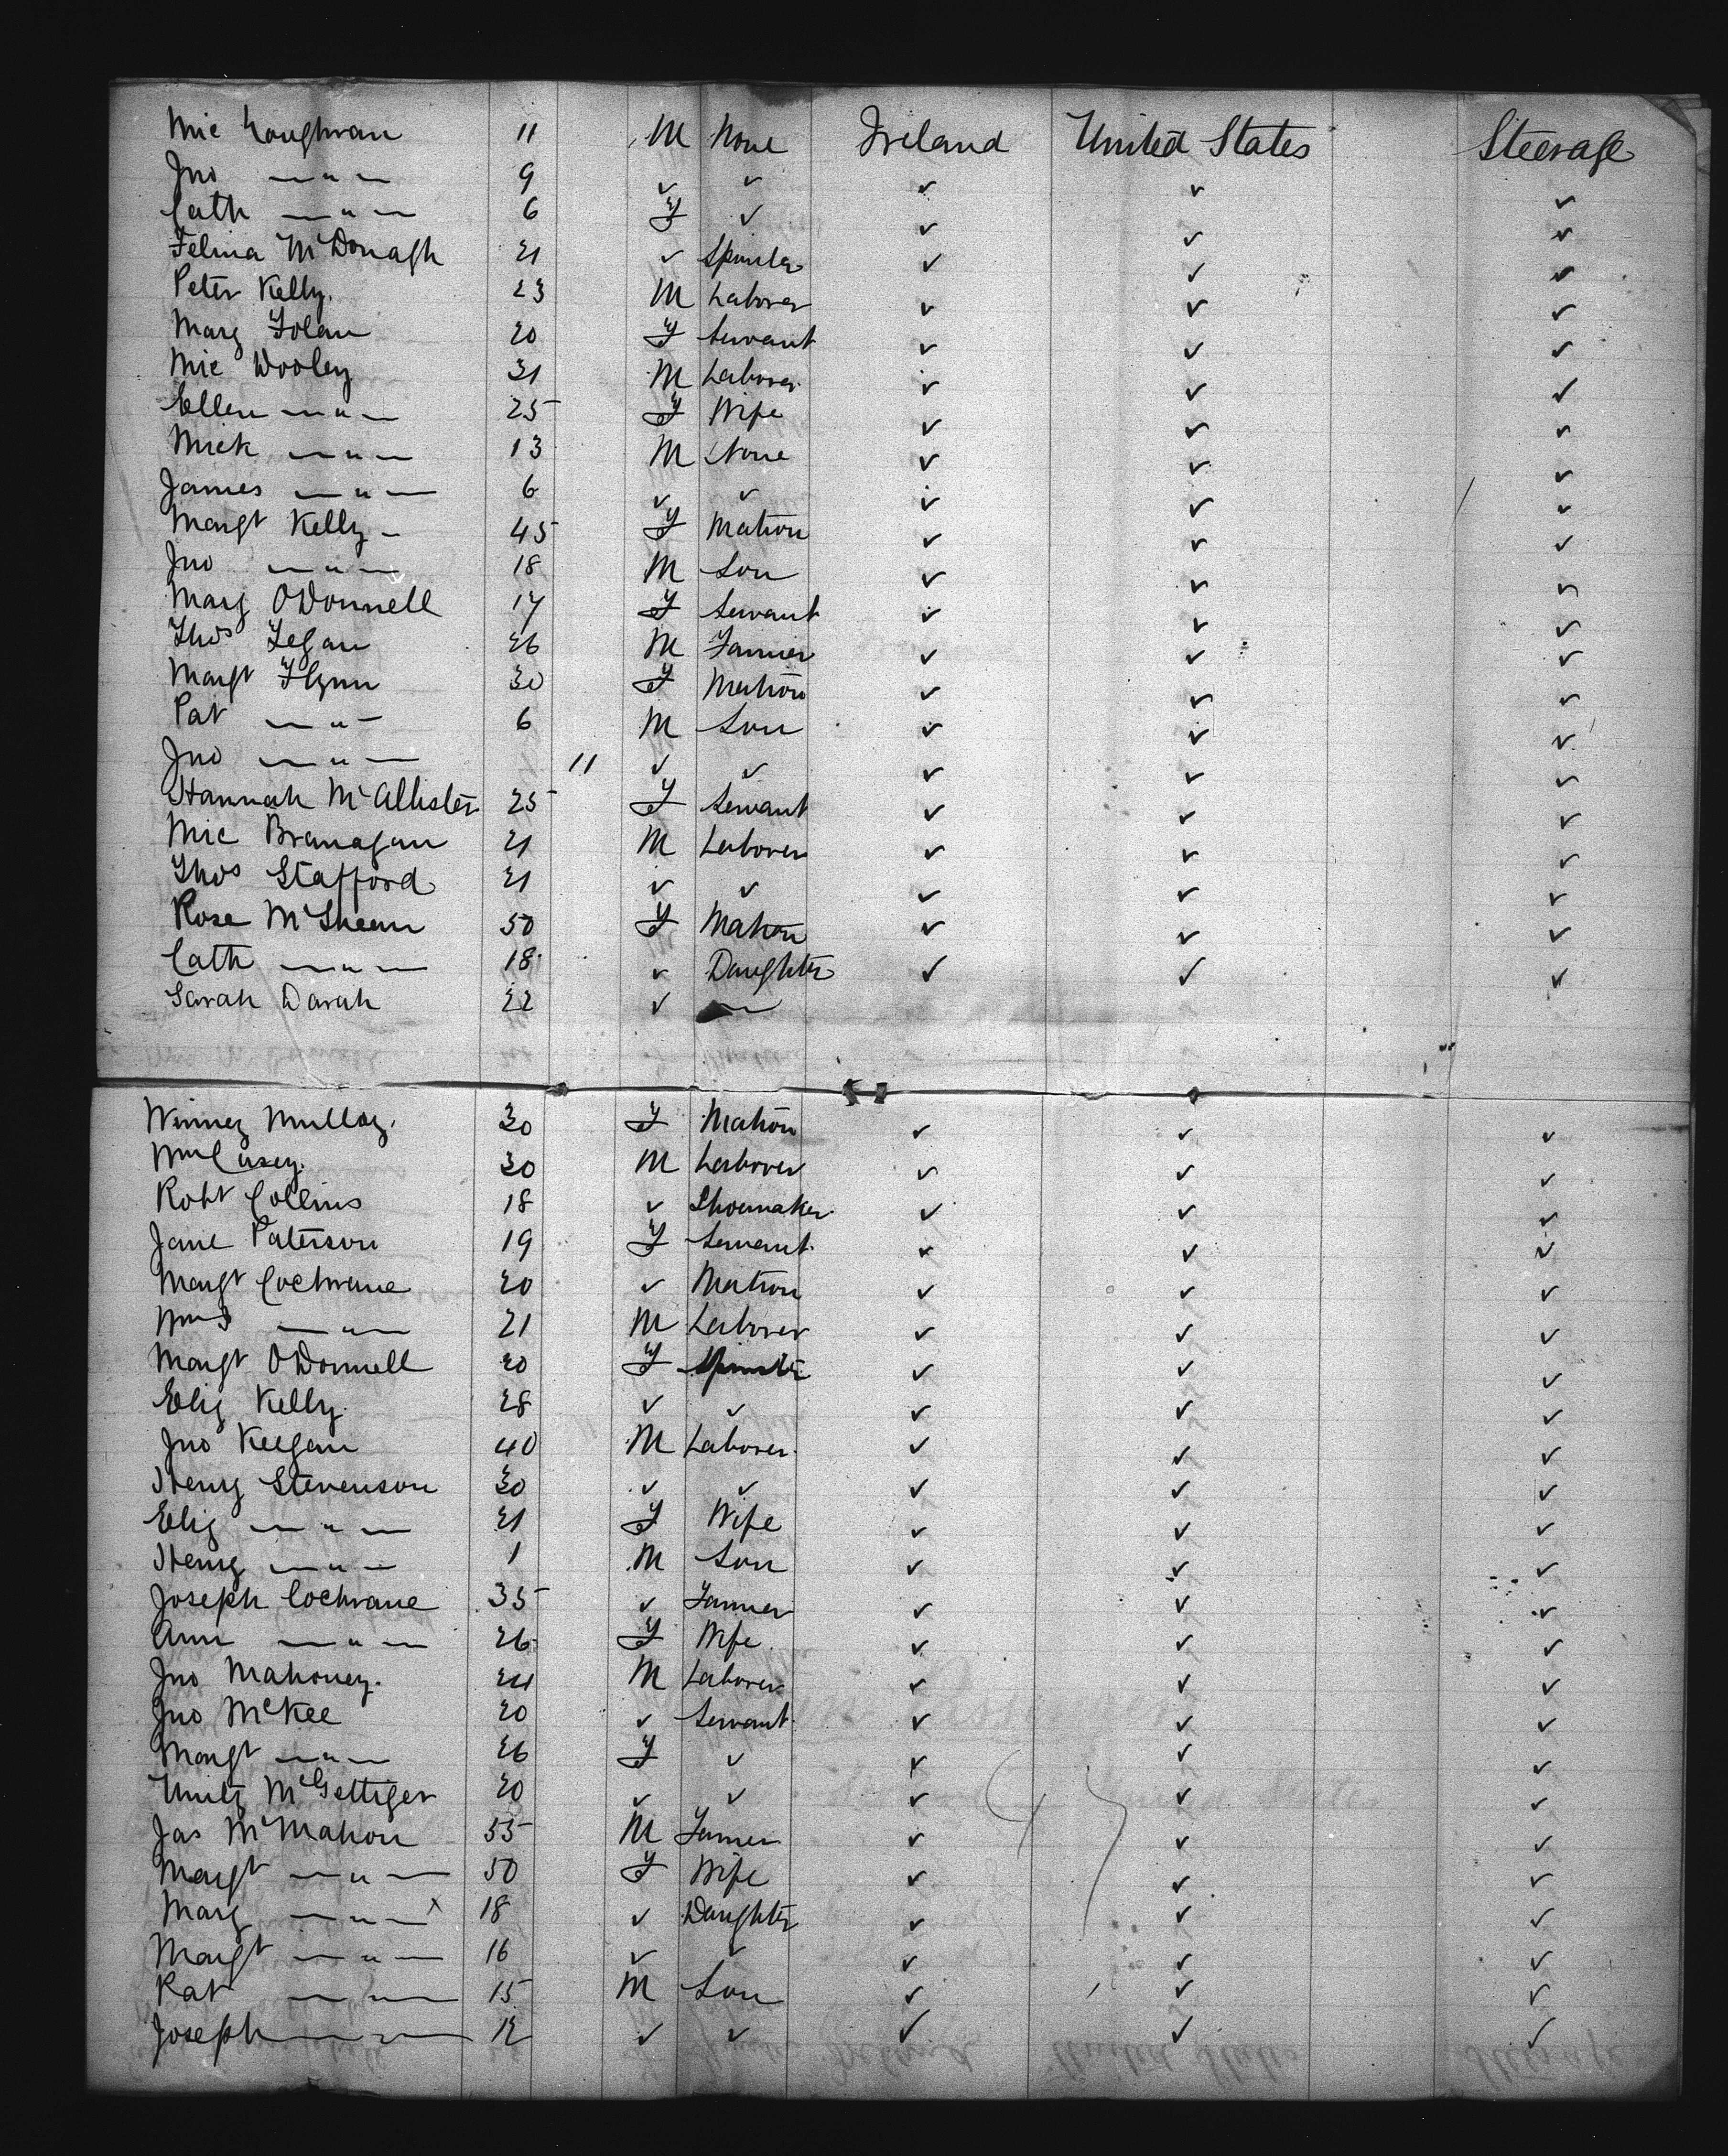 Mic Loughran 11 M None Ireland United States Steerage
Jno — " — 9 ✓ ✓ ✓ ✓ ✓
Cath — " — 6 F ✓ ✓ ✓ ✓
Felina McDonagh 21 ✓ Spinster ✓ ✓ ✓
Peter Kelly. 23 M Laborer ✓ ✓ ✓
Mary Folan 20 F Servant ✓ ✓ ✓
Mic Wooley 31 M Laborer ✓ ✓ ✓
Ellen — " — 25 F Wife ✓ ✓ ✓
Mick — " — 13 M None ✓ ✓ ✓
James — " — 6 ✓ ✓ ✓ ✓ ✓
Margt Kelly — 45 F Matron ✓ ✓ ✓
Jno — " — 18 M Son ✓ ✓ ✓
Mary O'Donnell 17 F Servant ✓ ✓ ✓
Thos Fegan 26 M Farmer ✓ ✓ ✓
Margt Flynn 30 F Matron ✓ ✓ ✓
Pat — " — 6 M Son ✓ ✓ ✓
Jno — " — 11 ✓ ✓ ✓ ✓ ✓
Hannah McAllister 25 F Servant ✓ ✓ ✓
Mic Branagan 21 M Laborer ✓ ✓ ✓
Thos Stafford 21 ✓ ✓ ✓ ✓ ✓
Rose McSheen 50 F Matron ✓ ✓ ✓
Cath — " — 18 ✓ Daughter ✓ ✓ ✓
Sarah Darah 22 ✓ —
Winney Mulloy. 30 F Matron ✓ ✓ ✓
Wm Casey. 30 M Laborer ✓ ✓ ✓
Robt Collins 18 ✓ Shoemaker ✓ ✓ ✓
Jane Paterson 19 F Servant ✓ ✓ ✓
Margt Cochrane 20 ✓ Matron ✓ ✓ ✓
Wm — " — 21 M Laborer ✓ ✓ ✓
Margt O'Donnell 20 F Spinster ✓ ✓ ✓
Eliz Kelly. 28 ✓ ✓ ✓ ✓ ✓
Jno Keegan 40 M Laborer ✓ ✓ ✓
Henry Stevenson 30 ✓ ✓ ✓ ✓ ✓
Eliz — " — 21 F Wife ✓ ✓ ✓
Henry — " — 1 M Son ✓ ✓ ✓
Joseph Cochrane 35 ✓ Farmer ✓ ✓ ✓
Ann — " — 26 F Wife ✓ ✓ ✓
Jno Mahoney. 24 M Laborer ✓ ✓ ✓
Jno McKee 20 ✓ Servant ✓ ✓ ✓
Margt — " — 26 F ✓ ✓ ✓ ✓
Unity McGettiger 20 ✓ ✓ ✓ ✓ ✓
Jas McMahon 55 M Farmer ✓ ✓ ✓
Margt — " — 50 F Wife ✓ ✓ ✓
Mary — " — x 18 ✓ Daughter ✓ ✓ ✓
Margt — " — 16 ✓ ✓ ✓ ✓ ✓
Pat — " — 15 M Son ✓ ✓ ✓
Joseph — " — 12 ✓ ✓ ✓ ✓ ✓